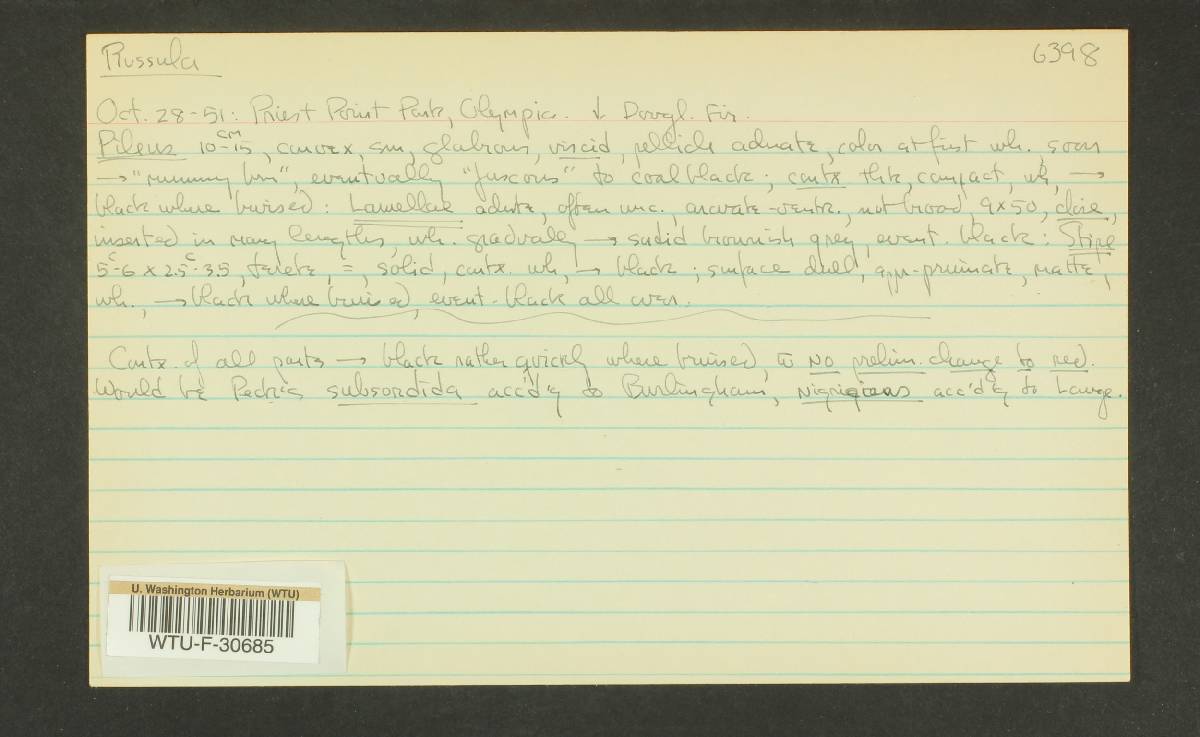 Russula
6398
Oct. 28-51: Priest Point Park, Olympia. ↓ Dougl. Fir.
Pileus 10-15 cm, convex, sm, glabrous, viscid, pellicle adnate, color at first wh. soon
→ "mummy brn", eventually "fuscous" to coal black; contx thk, compact, wh, →
black where bruised: Lamellae adnte, often unc., arcuate-ventr., not broad, 9x50, close,
inserted in many lengths, wh. gradually → sordid brownish grey, event. black: Stipe
5-6 x 2.5-3.5 c, terete, =, solid, contx. wh, → black; surface dull, app-pruinate, matte,
wh., → black where bruised, event-black all over.
Contx. of all parts → black rather quickly where bruised, w NO prelim. change to red.
Would be Peck's subsordida acc'd'g to Burlingham, nigricans acc'd'g to Lange.
U. Washington Herbarium (WTU)
WTU-F-30685